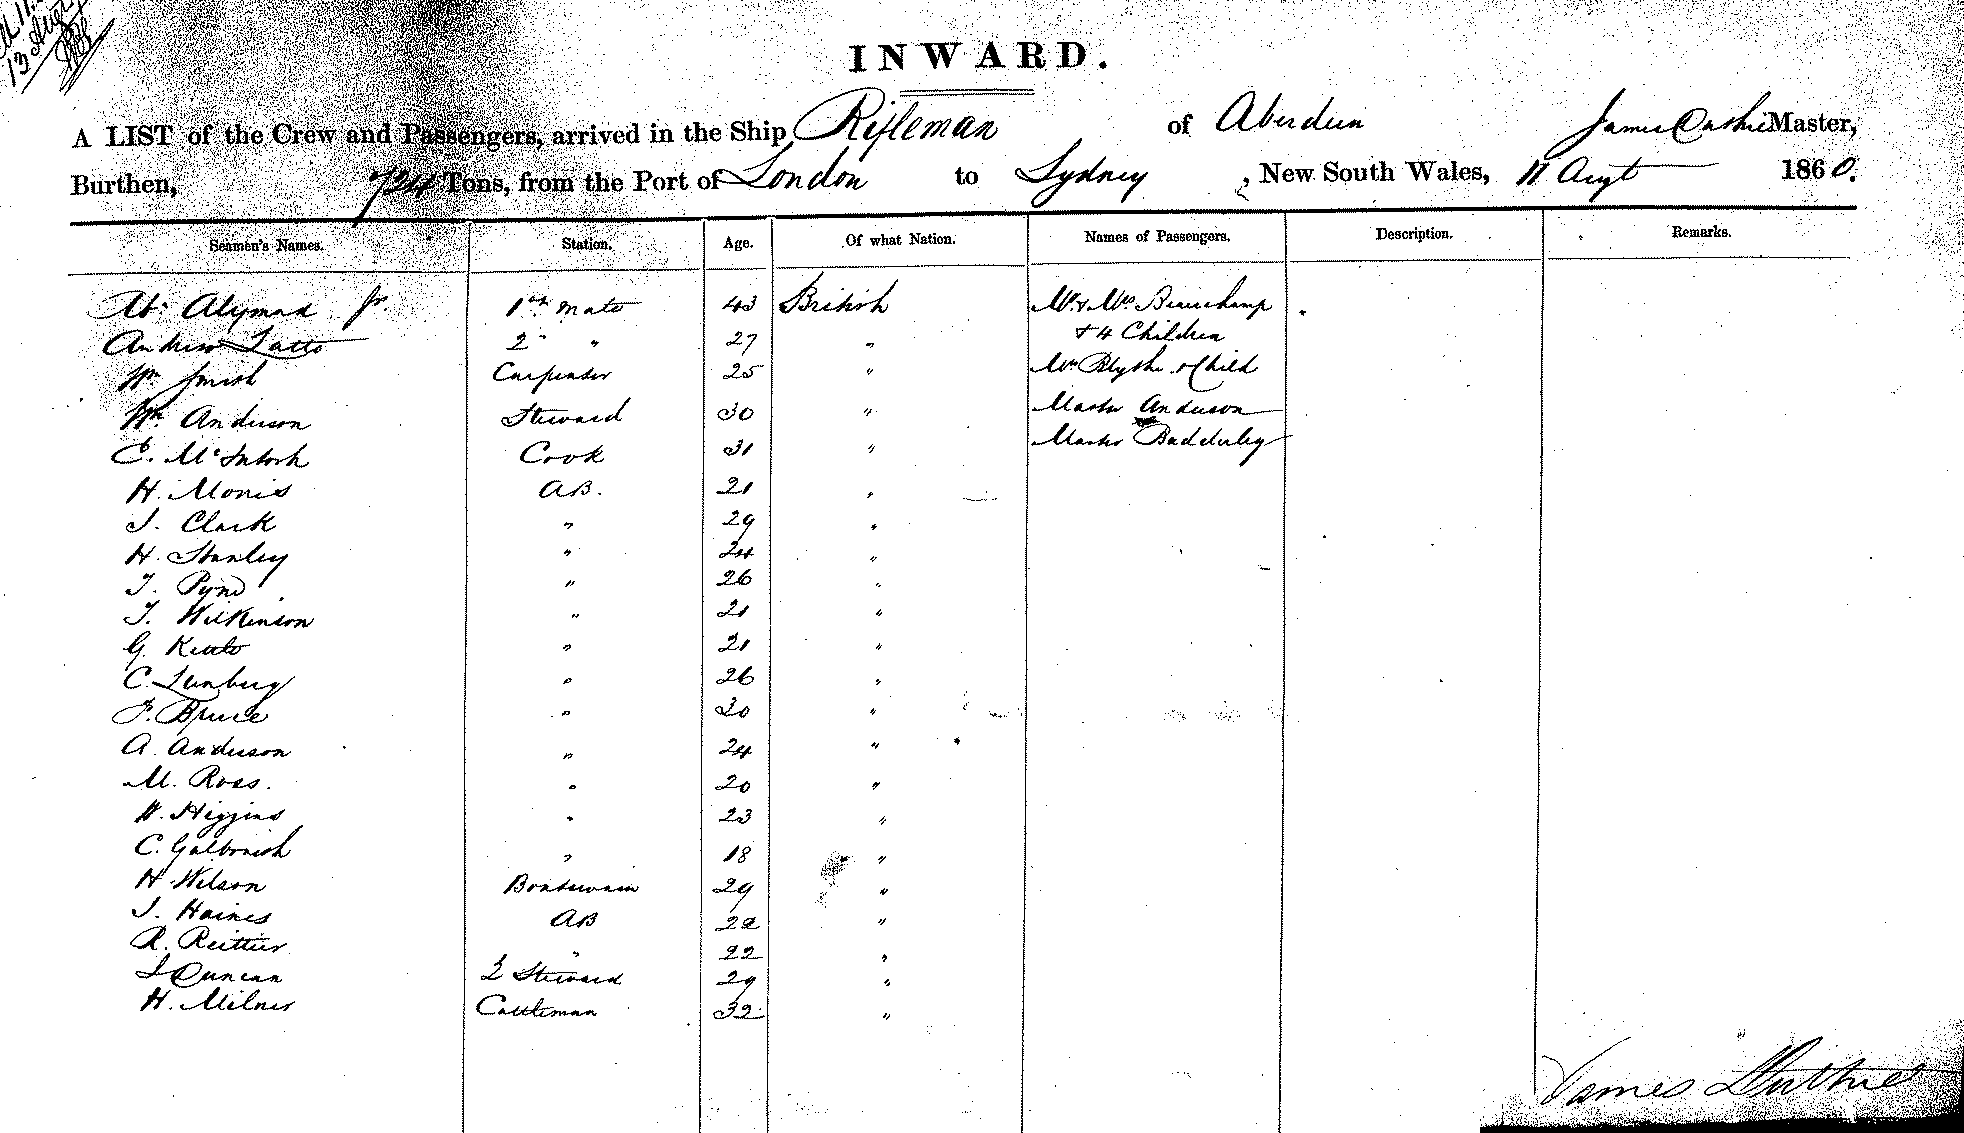 13 Aug
INWARD.
A LIST of the Crew and Passengers, arrived in the Ship Rifleman of Aberdeen James Duthie Master,
Burthen, 724 Tons, from the Port of London to Sydney, New South Wales, 11 Augt 1860.
Seamen's Names. Station. Age. Of what Nation. Names of Passengers. Description. Remarks.
1st Mate 43 British Mr & Mrs Beauchamp
Andrew Latto 2 " " 27 " & 4 Children
Wm Smith Carpenter 25 " Mrs Blythe & Child
Wm Anderson Steward 30 " Master Anderson
E. McIntosh Cook 31 " Master Badderley
H. Morris AB. 21 "
J. Clark " 29 "
H. Stanley " 24 "
T. Pyne " 26 "
T. Wilkinson " 21 "
G. " 21 "
C. Lunberg " 26 "
F. Bruce " 20 "
A. Anderson " 24 "
M. Ross. " 20 "
H. Higgins " 23 "
C. Galbraith " 18 "
H Wilson Boatswain 29 "
J. Haines AB 22 "
R. " 22 "
J Duncan 2 Steward 29 "
H. Milner Cattleman 32 "
James Duthie